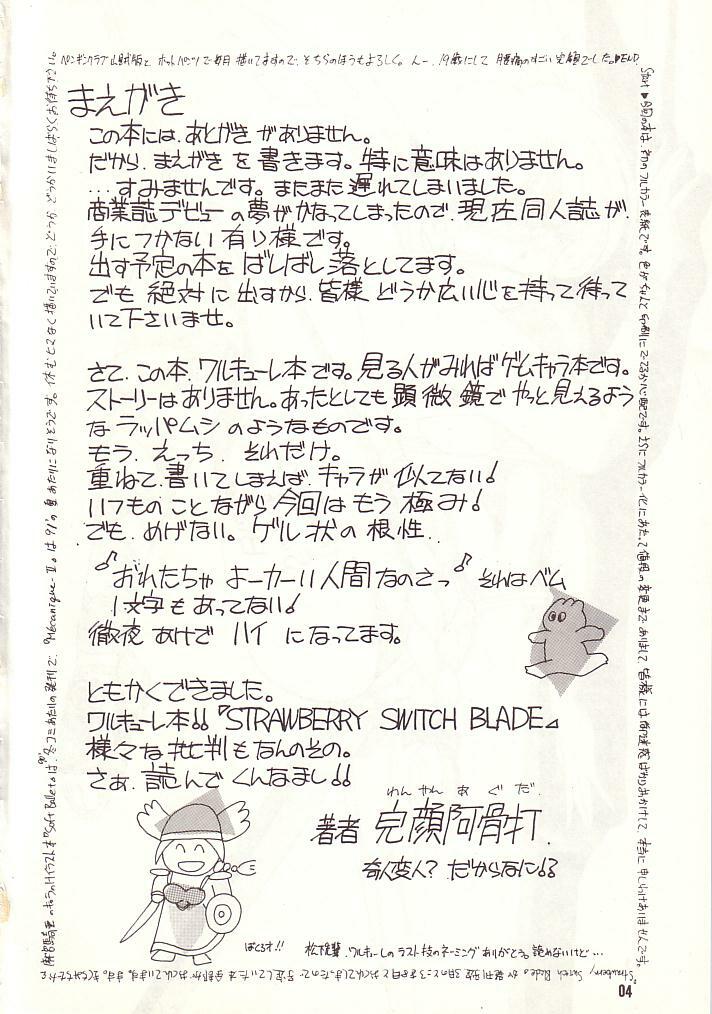 まえがき
この本には、あとがきがありません。
だから、まえがきを書きます。特に意味はありません。
…すみませんです。またまた遅れてしまいました。
商業誌デビューの夢がかなってしまったので、現在同人誌が、
手につかない有り様です。
出す予定の本をばしばし落としてます。
でも絶対に出すから、皆様どうか広い心を持って待って
いて下さいませ。
さて、この本、ワルキューレ本です。見る人がみればゲームキャラ本です。
ストーリーはありません。あったとしても顕微鏡でやっと見えるよう
なラッパムシのようなものです。
もう、えっち、それだけ。
重ねて、書いてしまえば、キャラが似てない!
いつものことながら今回はもう極み!
でも、めげない。ゲル状の根性、
♪おれたちゃよーかーい人間なのさっ♪それはベム
1文字もあってない!
徹夜あけでハイになってます。
ともかくできました。
ワルキューレ本!!『STRAWBERRY SWITCH BLADE』
様々な批判もなんのその。
さあ、読んでくんなまし!!
わんやんあぐだ
著者 完顔阿骨打
奇人変人?だからなに!?
ばくろオ!!
松院輩、ワルキューレのラスト技のネーミングありがとう。読れないけど…
ペンギンクラブ山賊版とホットパンツで毎月描いてますので、そちらのほうもよろしく。んー、19歳にして腰痛のすごい完顔でした。END
Start 今回の本は、初のフルカラー表紙です。色がちゃんと印刷にでてるか心配です。さらにフルカラー化にあたって値段の変更までありまして、皆様には御迷惑ばかりおかけして、本当に申しわけありませんです。
04